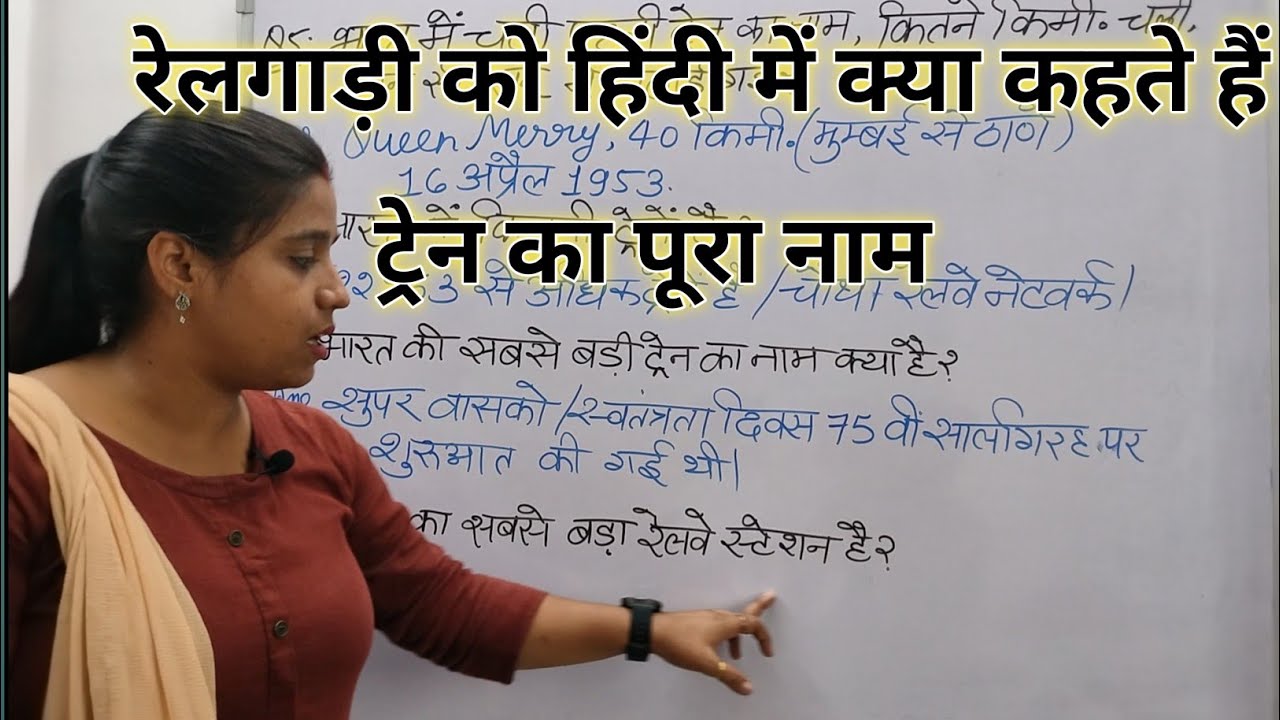 में चली नाम, कितने किमी. चली,
रेलगाड़ी को हिंदी में क्या कहते हैं
Queen Merry, 40 किमी. (मुम्बई से ठाणे)
16 अप्रैल 1953.
ट्रेन का पूरा नाम
3 से अधिक है / चौथा रेलवे नेटवर्क।
भारत की सबसे बड़ी ट्रेन का नाम क्या है?
सुपर वासको / स्वतंत्रता दिवस 75 वीं सालगिरह पर
शुरुआत की गई थी।
का सबसे बड़ा रेलवे स्टेशन है?